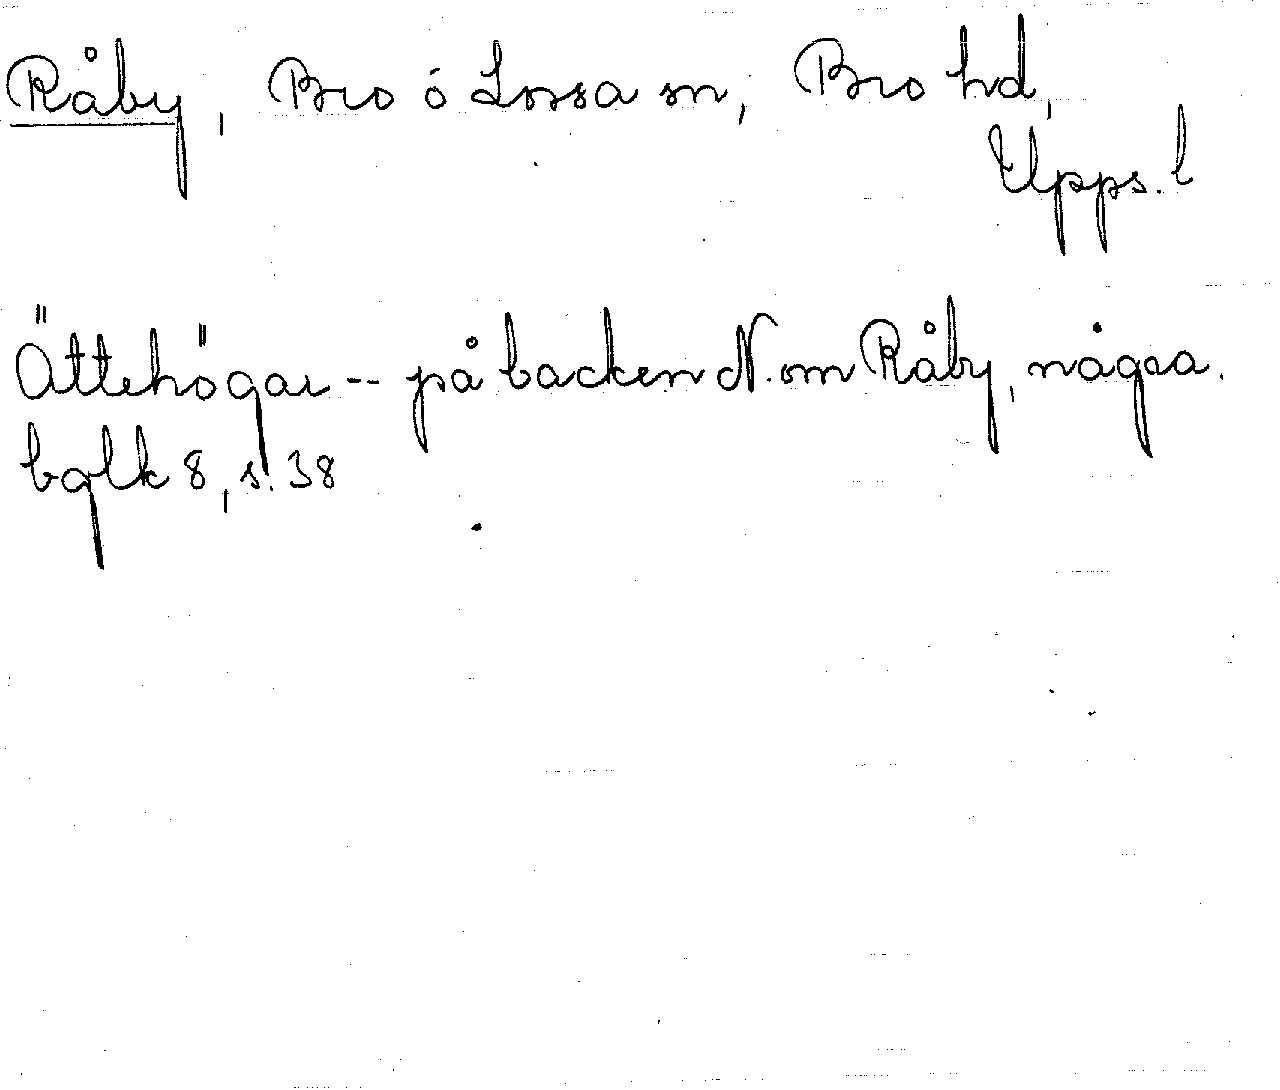 Råby, Bro ó Lossa sn, Bro hd,
Upps. l
Ättehögar -- på backen N. om Råby, några.
bglk 8, s. 38